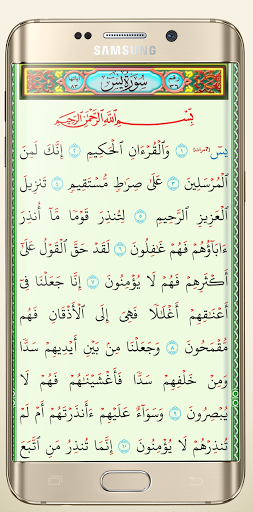 SAMSUNG
سُورَةُ يسٓ
بِسْمِ اللَّهِ الرَّحْمَٰنِ الرَّحِيمِ
يسٓ ١ وَالْقُرْءَانِ الْحَكِيمِ ٢ إِنَّكَ لَمِنَ
الْمُرْسَلِينَ ٣ عَلَىٰ صِرَٰطٍ مُّسْتَقِيمٍ ٤ تَنزِيلَ
الْعَزِيزِ الرَّحِيمِ ٥ لِتُنذِرَ قَوْمًا مَّا أُنذِرَ
ءَابَاؤُهُمْ فَهُمْ غَٰفِلُونَ ٦ لَقَدْ حَقَّ الْقَوْلُ عَلَىٰ
أَكْثَرِهِمْ فَهُمْ لَا يُؤْمِنُونَ ٧ إِنَّا جَعَلْنَا فِي
أَعْنَٰقِهِمْ أَغْلَٰلًا فَهِيَ إِلَى الْأَذْقَانِ فَهُم
مُّقْمَحُونَ ٨ وَجَعَلْنَا مِن بَيْنِ أَيْدِيهِمْ سَدًّا
وَمِنْ خَلْفِهِمْ سَدًّا فَأَغْشَيْنَٰهُمْ فَهُمْ لَا
يُبْصِرُونَ ٩ وَسَوَاءٌ عَلَيْهِمْ ءَأَنذَرْتَهُمْ أَمْ لَمْ
تُنذِرْهُمْ لَا يُؤْمِنُونَ ١٠ إِنَّمَا تُنذِرُ مَنِ اتَّبَعَ